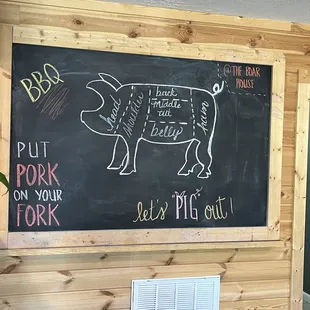 BBQ
@ THE BOAR
HOUSE
head
shoulder
back
middle
cut
belly
ham
PUT
PORK
ON YOUR
FORK
let's "PIG" out!